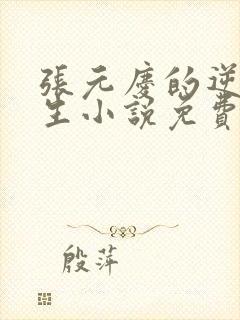 張元慶的逆
生小說免費
殷萍